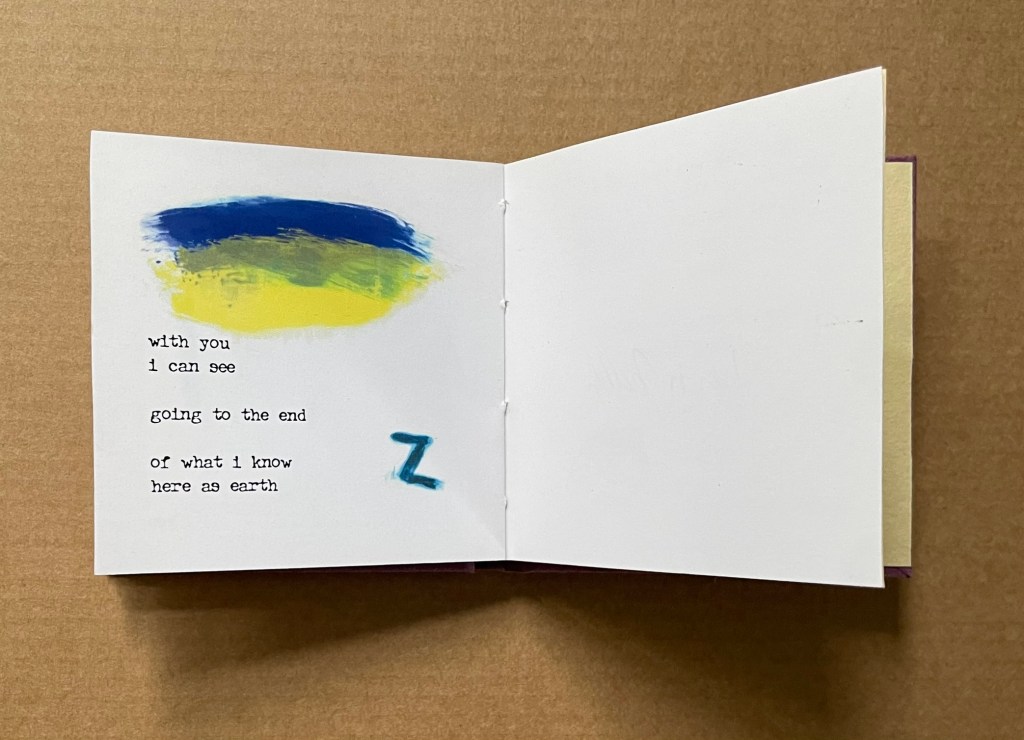 with you
i can see
going to the end
of what i know
here as earth
Z